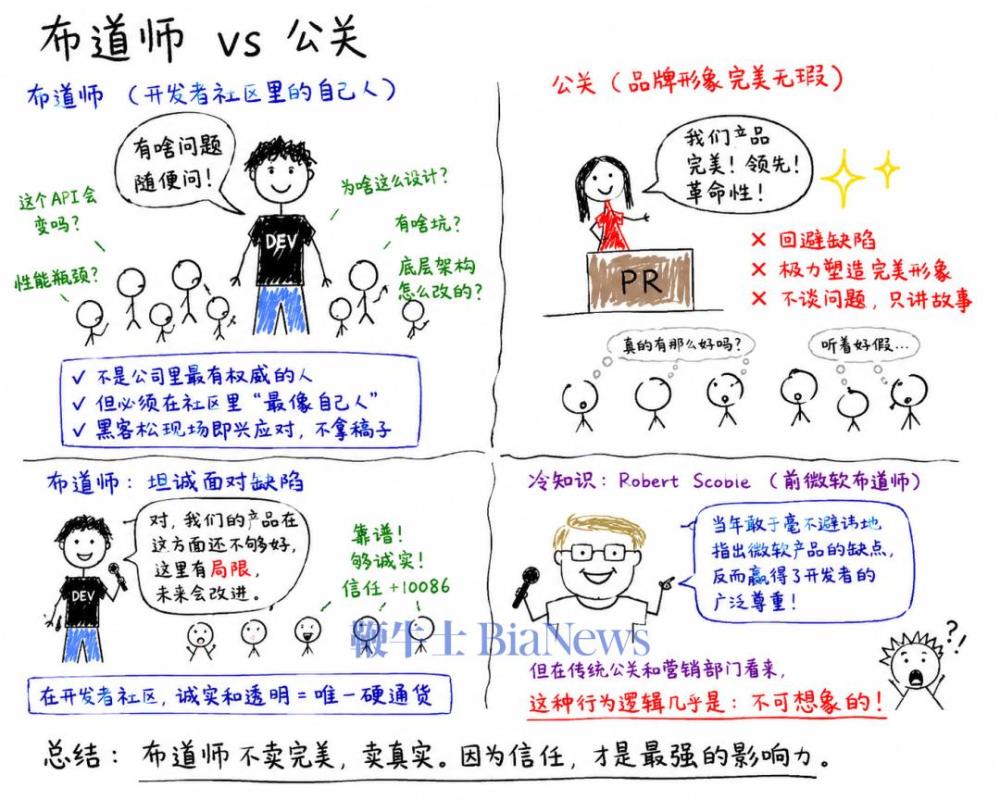 布道师 vs 公关
布道师（开发者社区里的自己人）
有啥问题
随便问！
这个API会
变吗？
性能瓶颈？
为啥这么设计？
有啥坑？
底层架构
怎么改的？
DEV
✓ 不是公司里最有权威的人
✓ 但必须在社区里“最像自己人”
✓ 黑客松现场即兴应对，不拿稿子
公关（品牌形象完美无瑕）
我们产品
完美！领先！
革命性！
PR
× 回避缺陷
× 极力塑造完美形象
× 不谈问题，只讲故事
真的有那么好吗？
听着好假...
布道师：坦诚面对缺陷
对，我们的产品在
这方面还不够好，
这里有局限，
未来会改进。
DEV
靠谱！
够诚实！
信任+10086
在开发者社区，诚实和透明=唯一硬通货
冷知识：Robert Scobie（前微软布道师）
当年敢于毫不避讳地
指出微软产品的缺点，
反而赢得了开发者的
广泛尊重！
但在传统公关和营销部门看来，
这种行为逻辑几乎是：不可想象的！
?!
鞭牛士 BiaNews
总结：布道师不卖完美，卖真实。因为信任，才是最强的影响力。